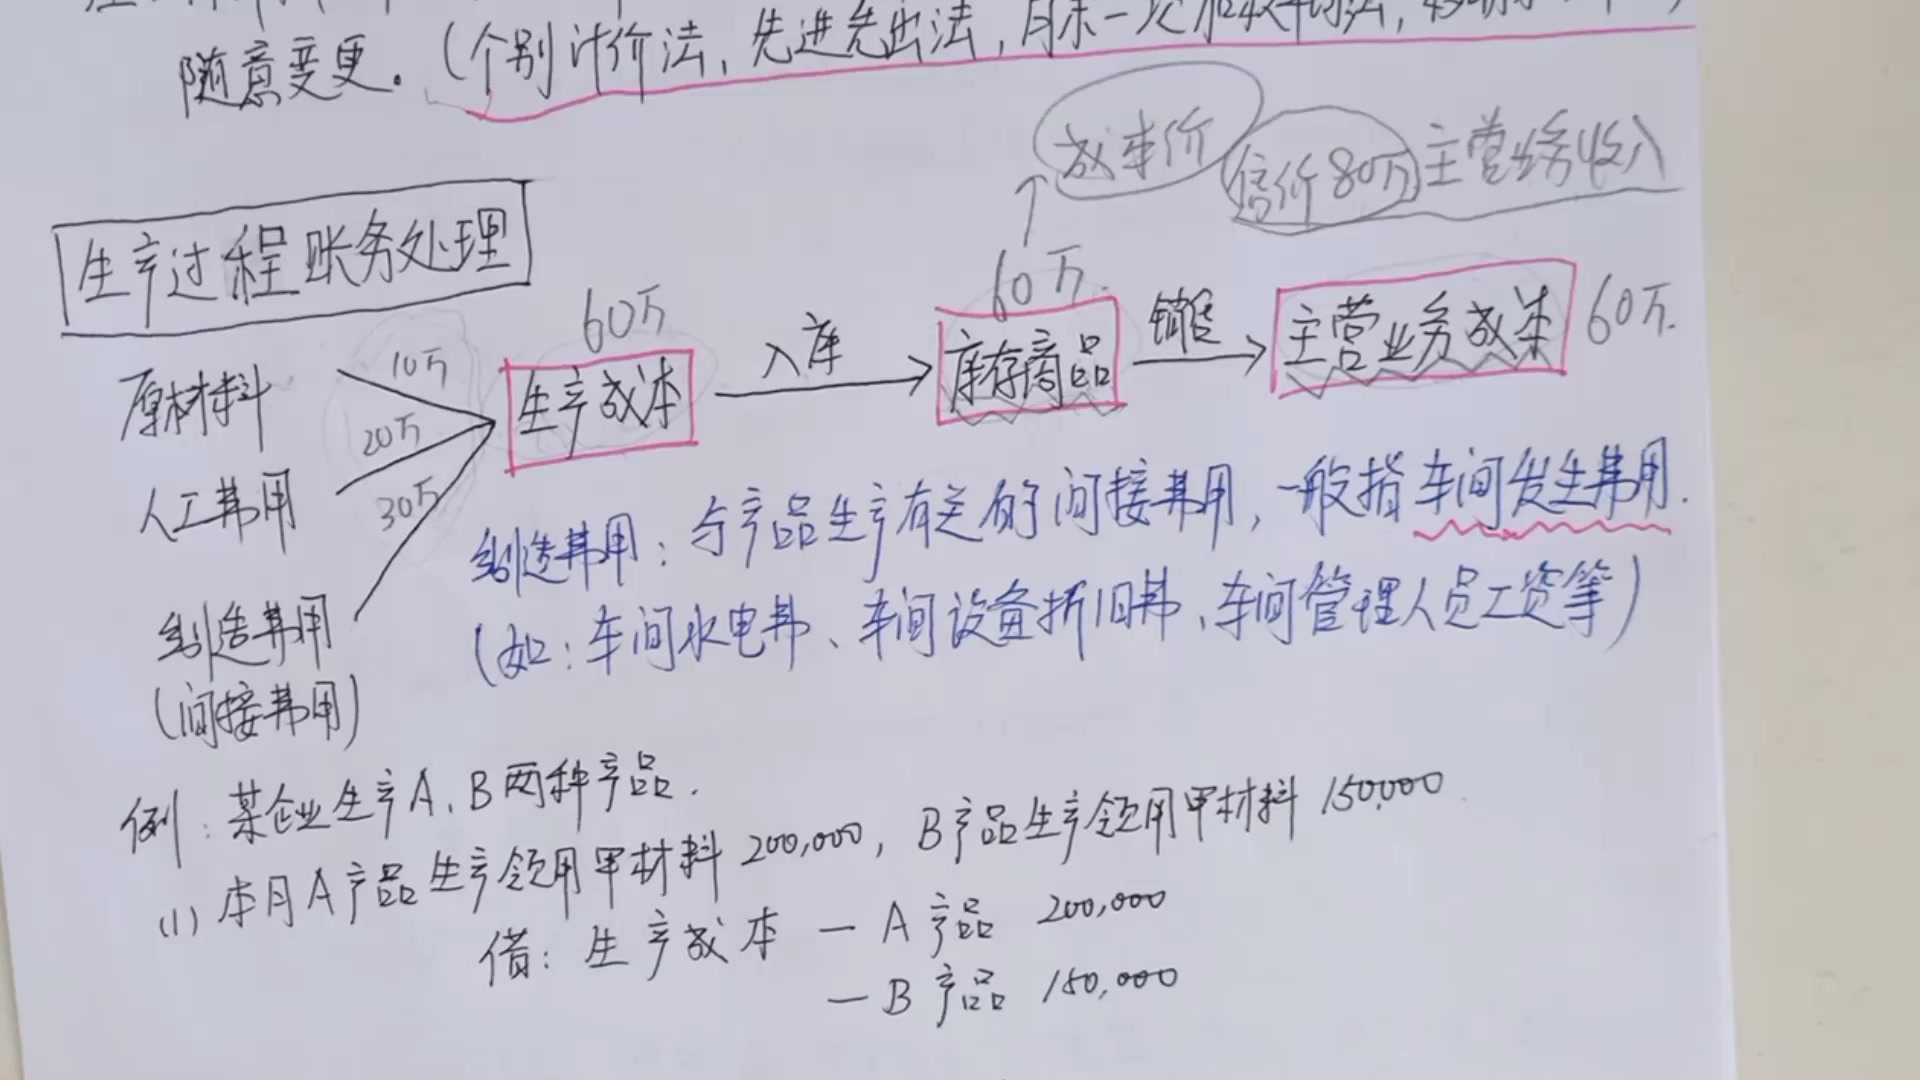 随意变更。(个别计价法，先进先出法，月末一次加权平均法，
成本价
售价80万 主营业务收入
生产过程账务处理
60万
60万.
原材料 10万
生产成本 入库 库存商品 销售 主营业务成本 60万.
20万
人工费用 30万
制造费用：与产品生产有关的间接费用，一般指车间发生费用.
制造费用
(间接费用)
(如：车间水电费、车间设备折旧费、车间管理人员工资等)
例：某企业生产A、B两种产品.
(1) 本月A产品生产领用甲材料 200,000，B产品生产领用甲材料 150,000.
借：生产成本 — A产品 200,000
— B产品 150,000